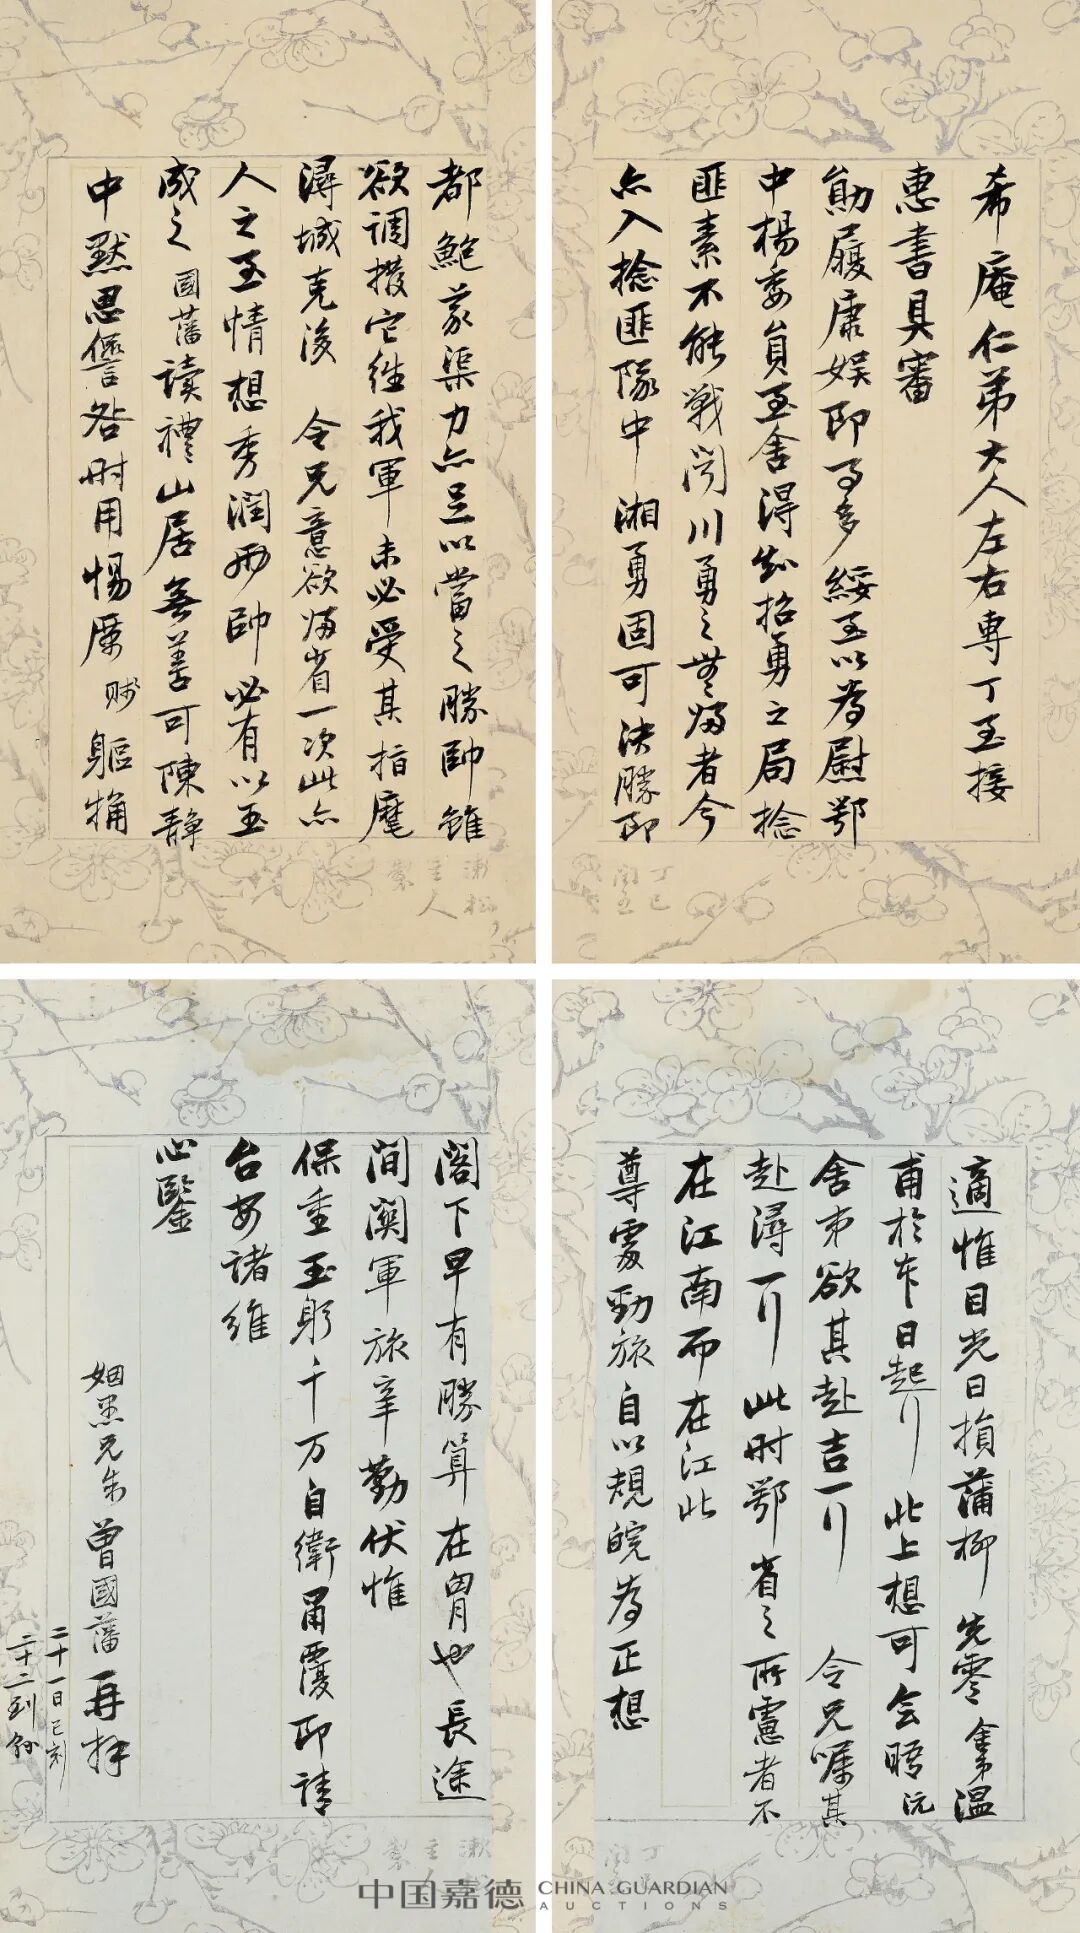 希庵仁弟大人左右專丁至接
惠書具審
勛履康娱即事多綏至以為慰鄂
中楊委員至舍得悉招勇之局捻
匪素不能戰聞川勇之無歸者今
亦入捻匪隊中湘勇固可決勝即
都鮑蒋渠力亦足以當之勝帥雖
欲調撥它往我軍未必受其指麾
潯城克後令兄意欲歸省一次此亦
人之至情想秀潤兩帥必有以玉
成之國藩讀禮山居無善可陳静
中默思愆咎時用惕厲賤軀猶
適惟目光日損蒲柳先零隼溫
甫於本日起行此上想可会晤沅
舍弟欲其赴吉一行令兄嘱其
赴潯一行此時鄂省之所慮者不
在江南而在江北
尊處勁旅自以規皖為正想
閣下早有勝算在胷也長途
間關軍旅辛勤伏惟
保重玉躬千万自衛甭覆即請
台安諸維
心鑒
姻愚兄制曾國藩再拜
二十一日巳刻
二十二到
丁巳
潄松
主人
製
丁巳
潄
主
製
中国嘉德 CHINA GUARDIAN
AUCTIONS